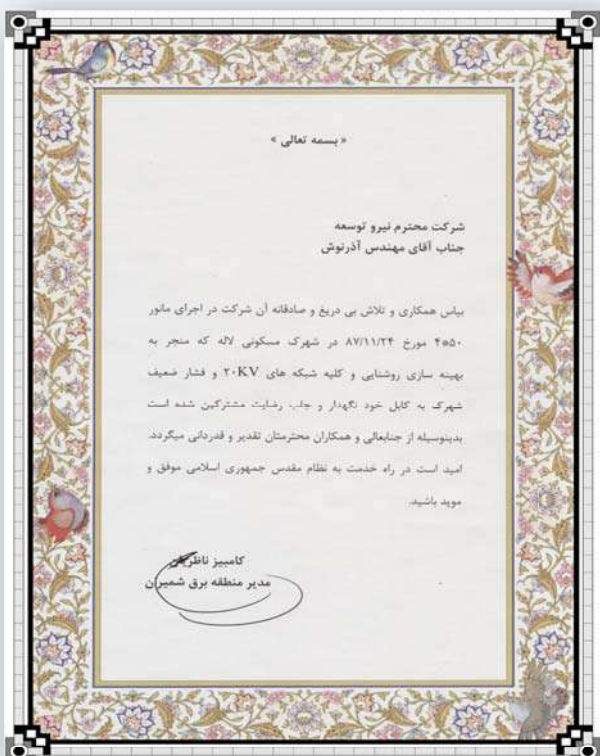 « بسمه تعالی »
شرکت محترم نیرو توسعه
جناب آقای مهندس آذرنوش
بپاس همکاری و تلاش بی دریغ و صادقانه آن شرکت در اجرای مانور
۴*۵۰ مورخ ۸۷/۱۱/۲۴ در شهرک مسکونی لاله که منجر به
بهینه سازی روشنایی و کلیه شبکه های ۲۰KV و فشار ضعیف
شهرک به کابل خود نگهدار و جلب رضایت مشترکین شده است
بدینوسیله از جنابعالی و همکاران محترمتان تقدیر و قدردانی میگردد.
امید است در راه خدمت به نظام مقدس جمهوری اسلامی موفق و
موید باشید.
کامبیز ناظریان
مدیر منطقه برق شمیران